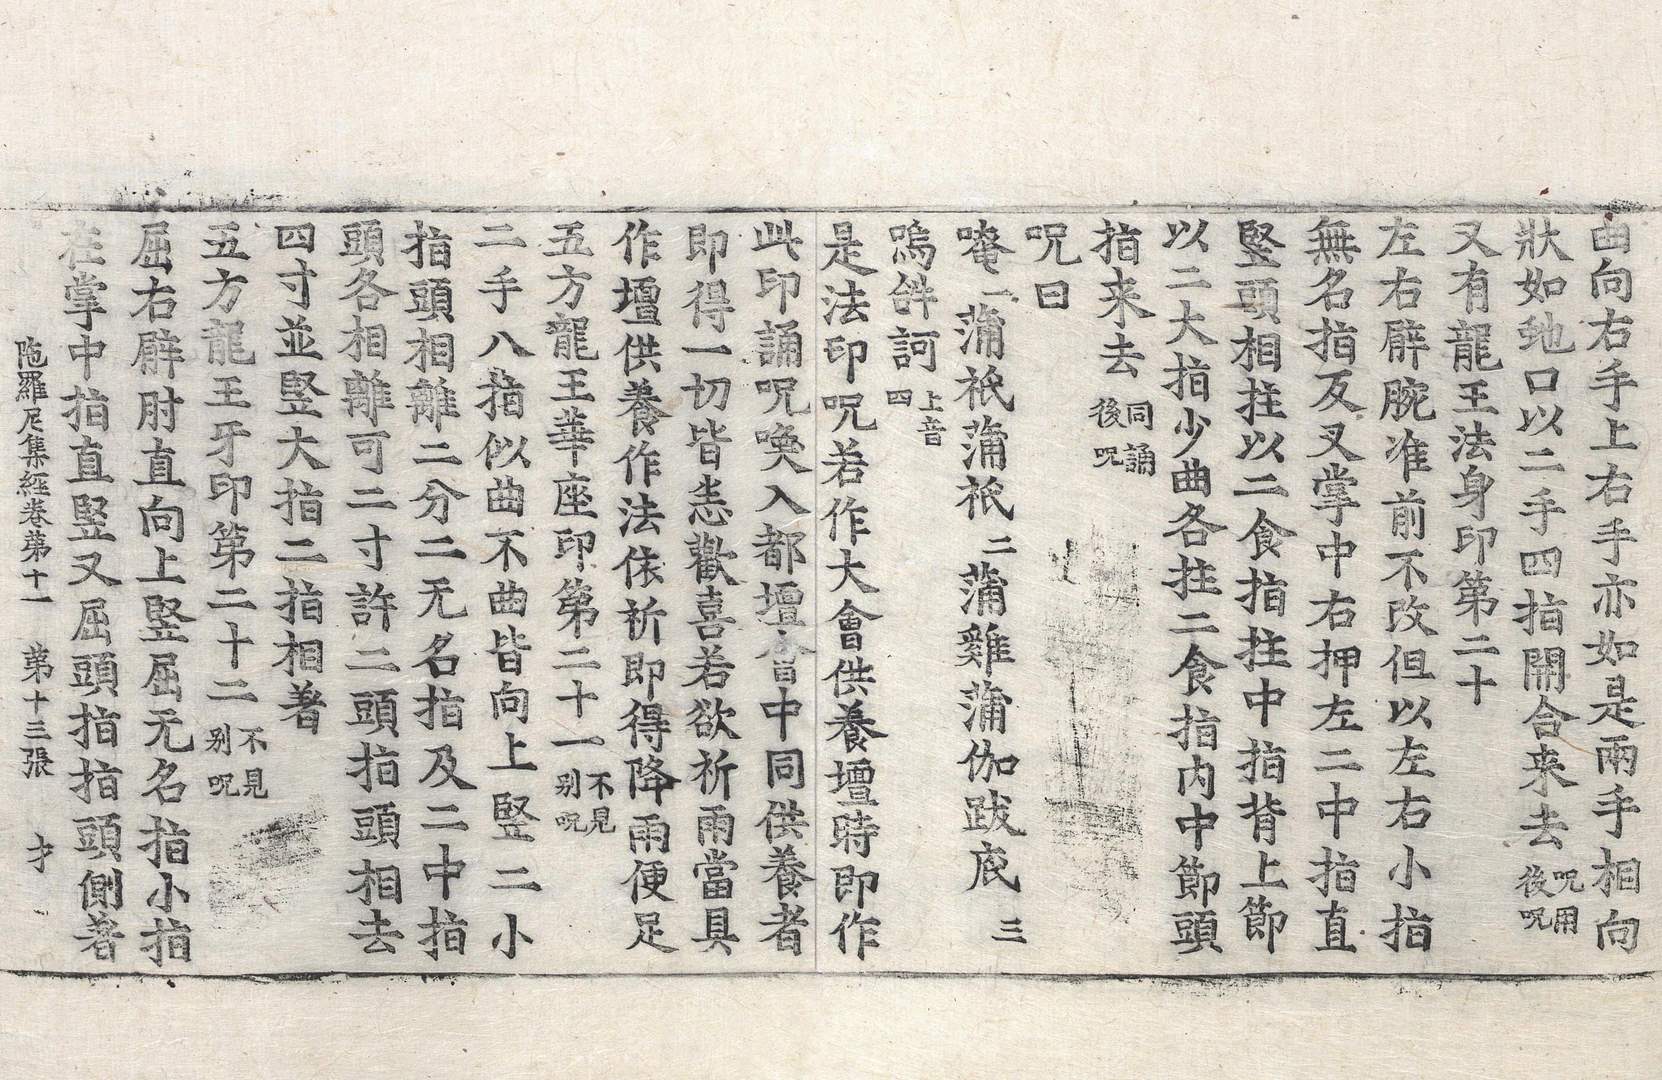 曲向右手上右手亦如是兩手相向
狀如虵口以二手四指開合来去呪用後呪
又有龍王法身印第二十
左右臂腕准前不改但以左右小指
無名指反叉掌中右押左二中指直
竪頭相拄以二食指拄中指背上節
以二大指少曲各拄二食指內中節頭
指来去同誦後呪
呪曰
唵一蒲祇蒲祇二蒲雞蒲伽跋底三
嗚𤙖訶上音四
是法印呪若作大會供養壇時即作
此印誦呪喚入都壇會中同供養者
即得一切皆恚歡喜若欲祈雨當具
作壇供養作法依祈即得降雨便足
五方龍王華座印第二十一不見別呪
二手八指似曲不曲皆向上竪二小
指頭相離二分二无名指及二中指
頭各相離可二寸許二頭指頭相去
四寸並竪大指二指相著
五方龍王牙印第二十二不見別呪
屈右臂肘直向上竪屈无名指小指
在掌中指直竪又屈頭指指頭側著
陁羅尼集經卷第十一　第十三張　才